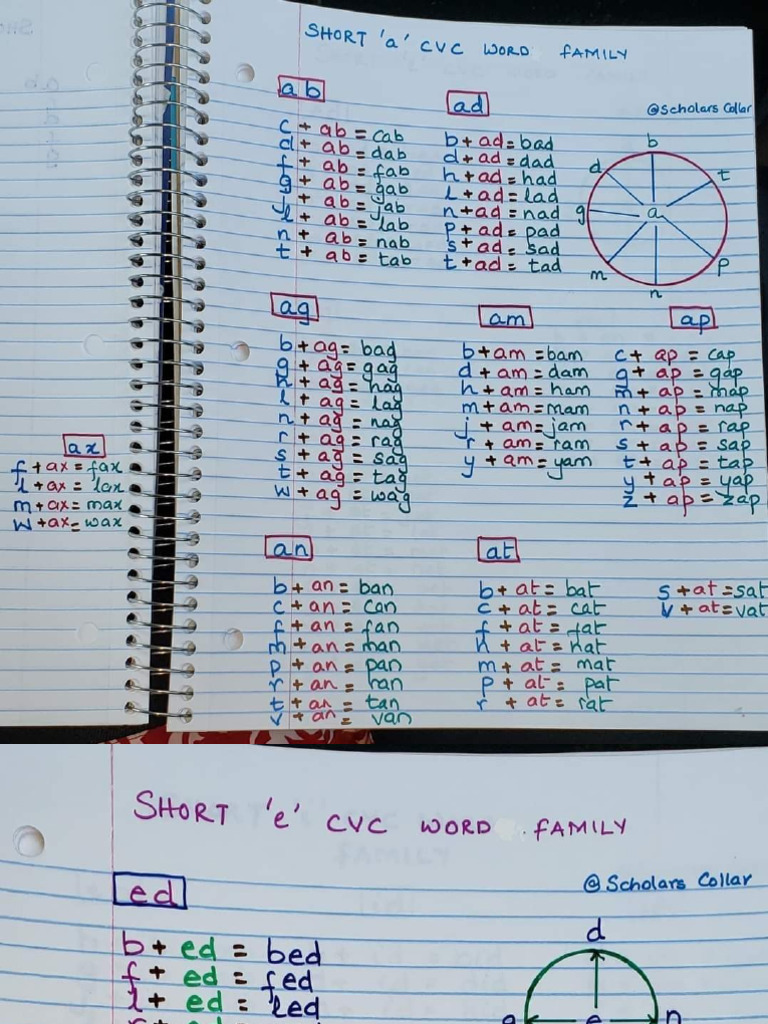 SHORT 'a' CVC WORD FAMILY
@Scholars Collar
ab
c + ab = cab
d + ab = dab
f + ab = fab
g + ab = gab
j + ab = jab
l + ab = lab
n + ab = nab
t + ab = tab
ad
b + ad = bad
d + ad = dad
h + ad = had
l + ad = lad
n + ad = nad
p + ad = pad
s + ad = sad
t + ad = tad
b
d
t
g
a
m
p
n
ag
b + ag = bag
g + ag = gag
h + ag = hag
l + ag = lag
n + ag = nag
r + ag = rag
s + ag = sag
t + ag = tag
w + ag = wag
am
b + am = bam
d + am = dam
h + am = ham
m + am = mam
j + am = jam
r + am = ram
y + am = yam
ap
c + ap = cap
g + ap = gap
m + ap = map
n + ap = nap
r + ap = rap
s + ap = sap
t + ap = tap
y + ap = yap
z + ap = zap
ax
f + ax = fax
l + ax = lax
m + ax = max
w + ax = wax
an
b + an = ban
c + an = can
f + an = fan
m + an = man
p + an = pan
r + an = ran
t + an = tan
v + an = van
at
b + at = bat
c + at = cat
f + at = fat
h + at = hat
m + at = mat
p + at = pat
r + at = rat
s + at = sat
v + at = vat
SHORT 'e' CVC WORD FAMILY
@ Scholars Collar
ed
b + ed = bed
f + ed = fed
l + ed = led
d
e
n